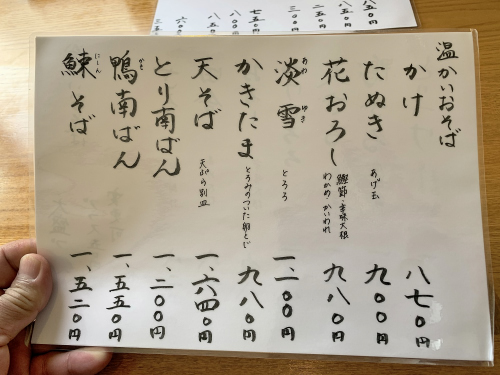 温かいおそば
かけ 八七〇円
たぬき あげ玉 九〇〇円
花おろし 鰹節・辛味大根 わかめ・かいわれ 九八〇円
淡雪 あわ ゆき とろろ 一、一〇〇円
かきたま とろみのついた卵とじ 九八〇円
天そば 天ぷら別皿 一、六四〇円
とり南ばん 一、二〇〇円
鴨南ばん かも 一、五五〇円
鰊そば にしん 一、五二〇円